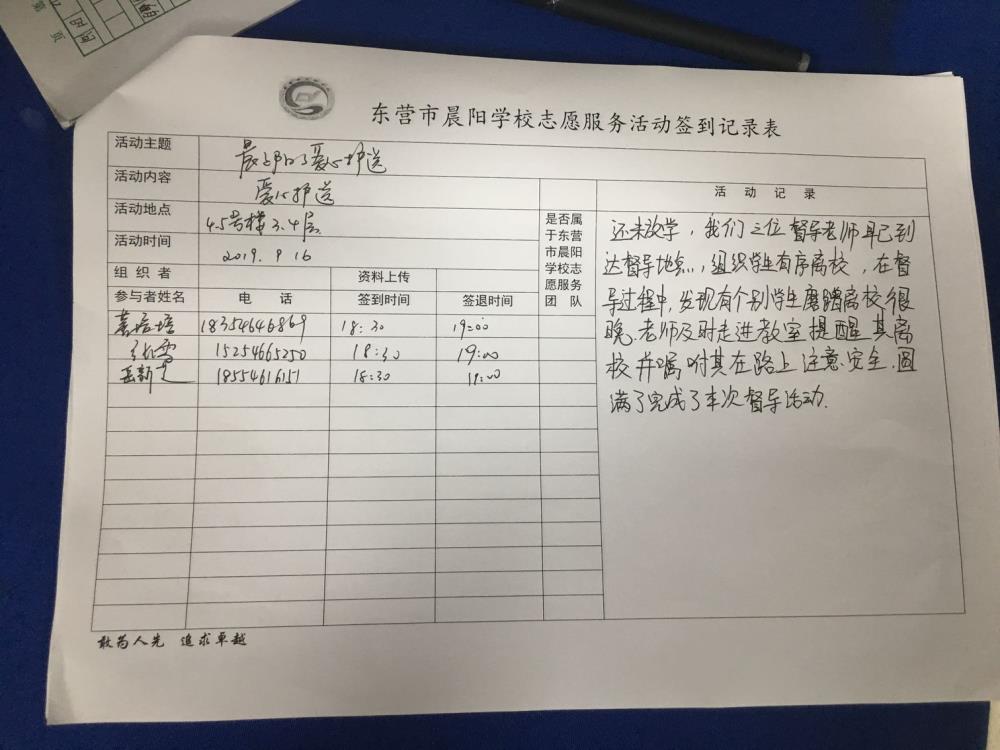 东营市晨阳学校志愿服务活动签到记录表
活动主题 晨阳爱心护送
活动内容 爱心护送
活动地点 4.5号楼3.4层
活动时间 2019.9.16
组织者 资料上传
参与者姓名 电话 签到时间 签退时间
是否属
于东营
市晨阳
学校志
愿服务
团队
18354646869 18:30 19:00
张雪 15254665250 18:30 19:00
18554616151 18:30 19:00
活动记录
还未放学，我们三位督导老师早已到
达督导地点，组织学生有序离校，在督
导过程中，发现有个别学生磨蹭离校很
晚，老师及时走进教室提醒其离
校并嘱咐其在路上注意安全，圆
满了完成了本次督导活动.
敢为人先 追求卓越
页